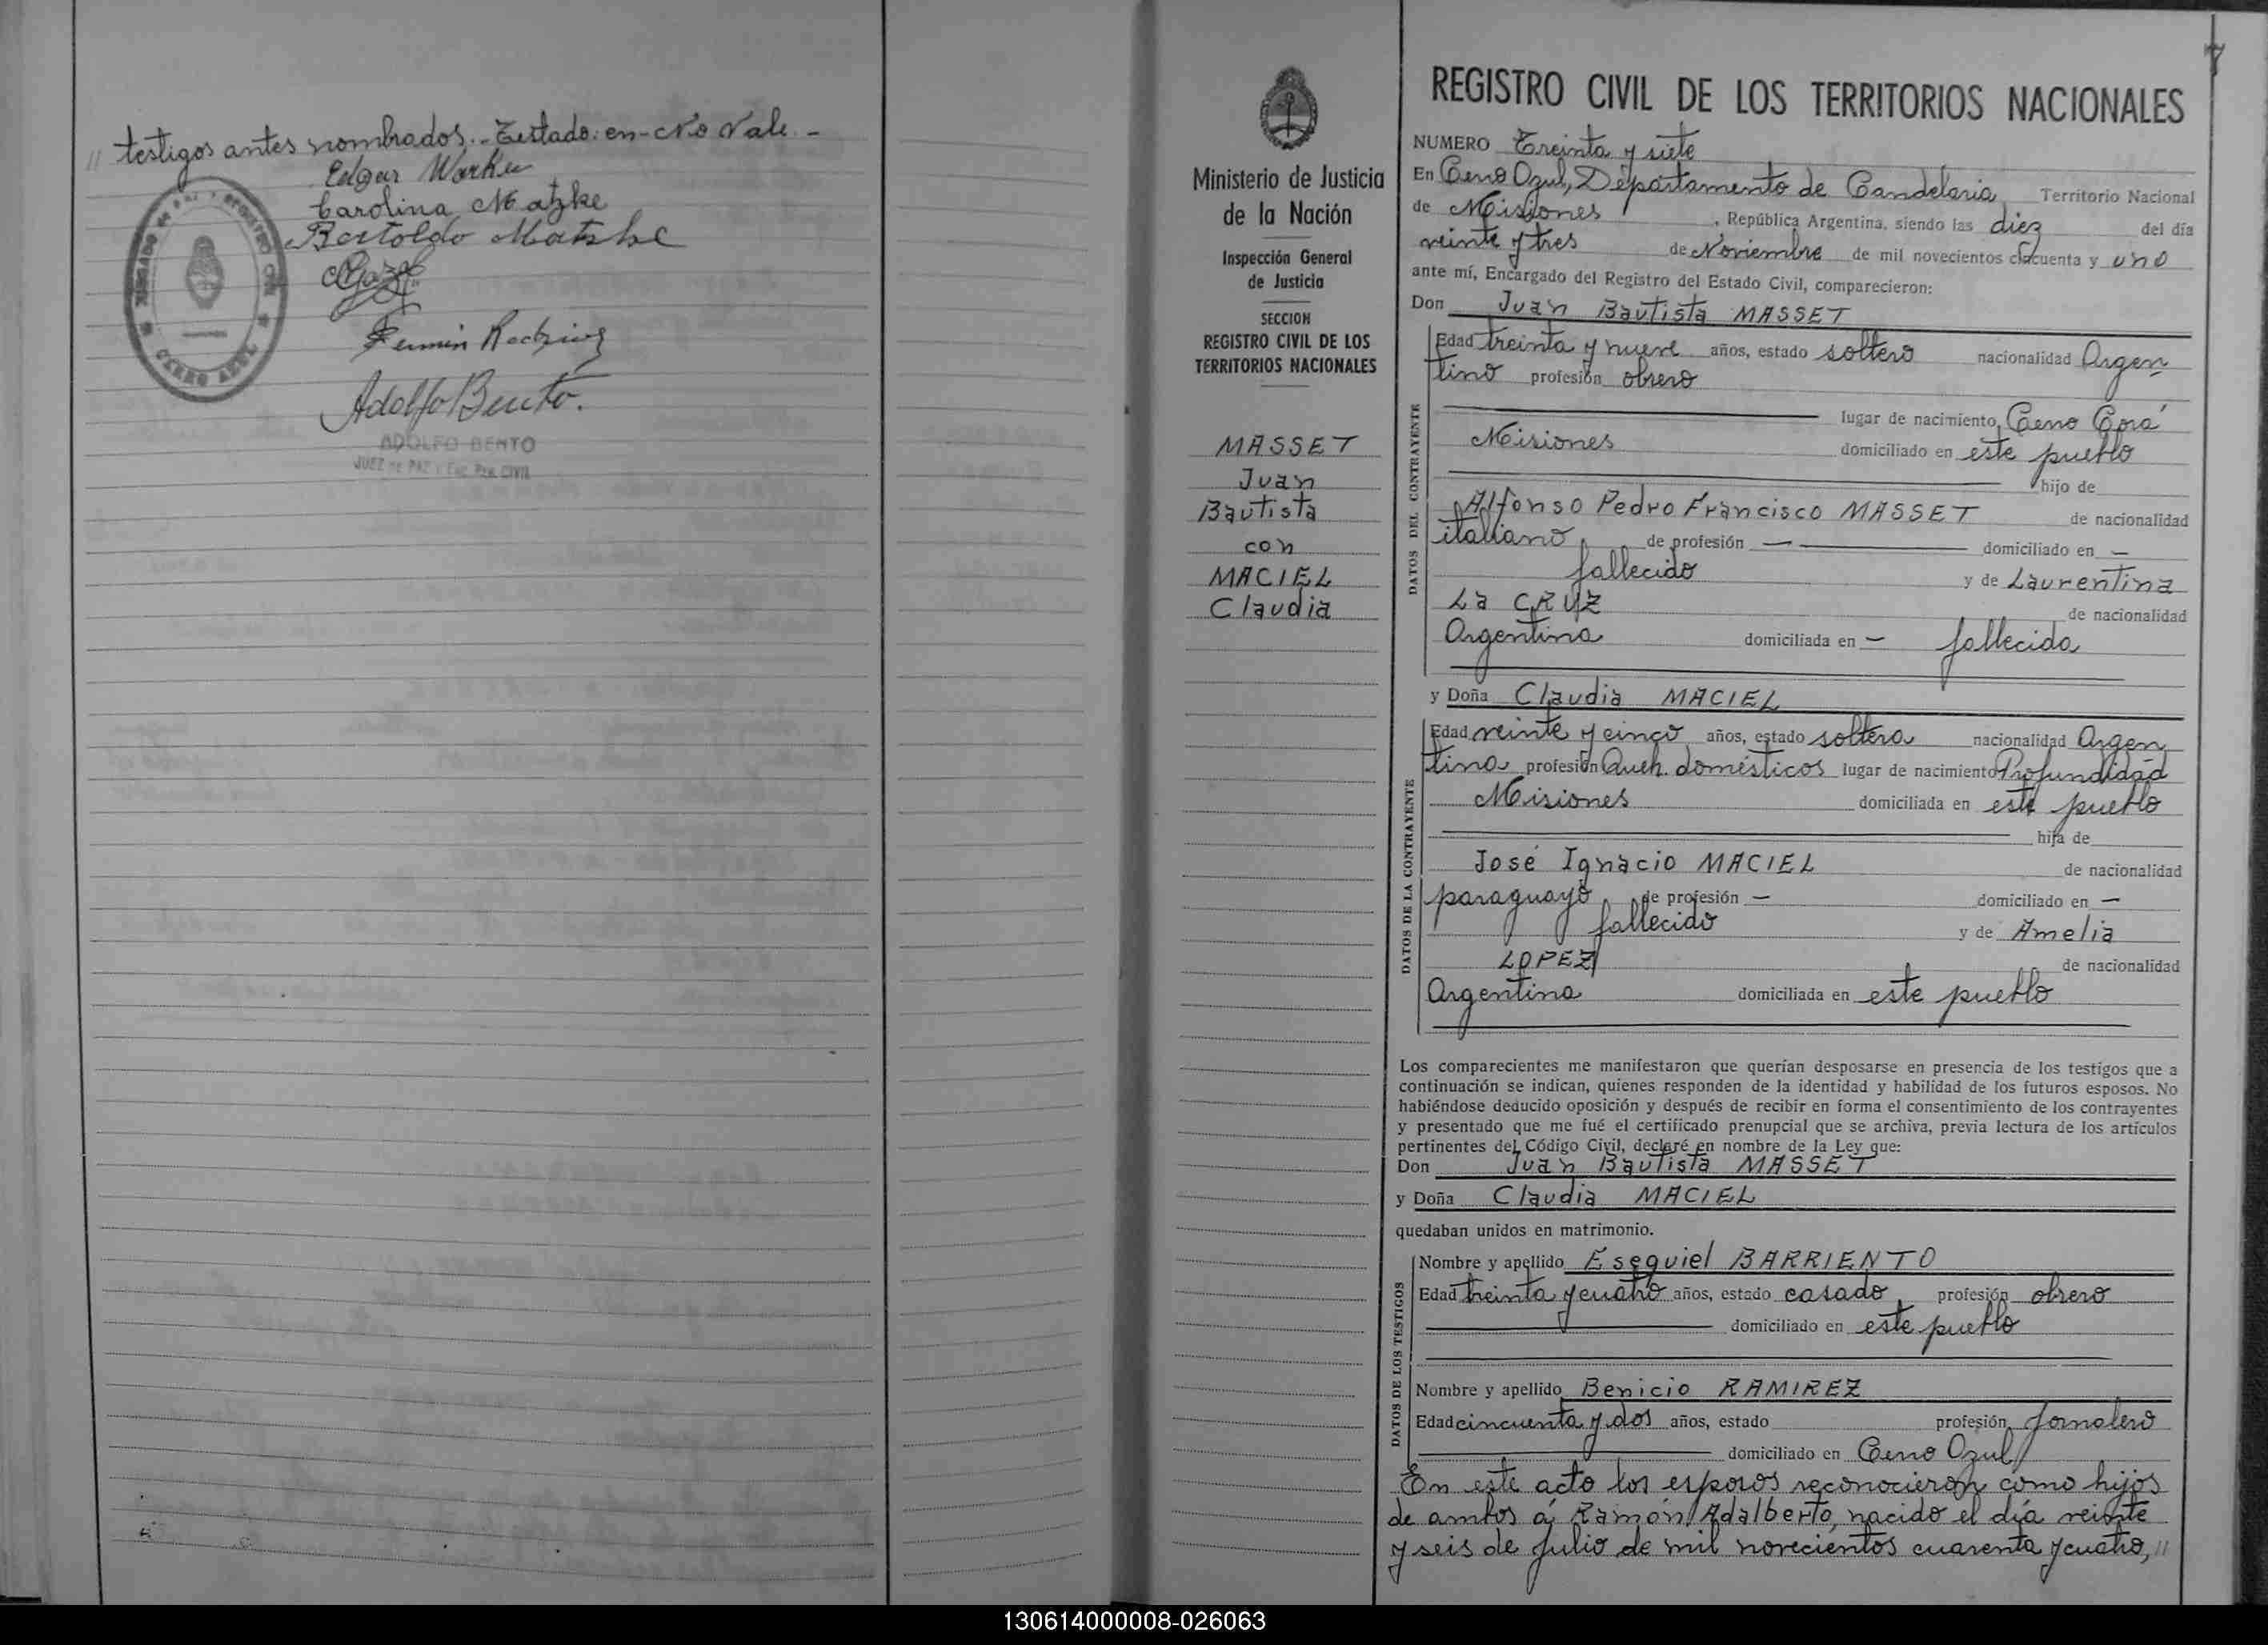 // testigos antes nombrados.- Testado: en-No Vale-
Edgar
Carolina Matzke
Bertoldo Matzke
Fermín Rodriguez
Adolfo Bento.
ADOLFO BENTO
JUEZ DE PAZ Y ENC. REG. CIVIL
JUZGADO DE PAZ Y REGISTRO CIVIL
CERRO AZUL
Ministerio de Justicia
de la Nación
Inspección General
de Justicia
SECCION
REGISTRO CIVIL DE LOS
TERRITORIOS NACIONALES
MASSET
Juan
Bautista
con
MACIEL
Claudia
7
REGISTRO CIVIL DE LOS TERRITORIOS NACIONALES
NUMERO Treinta y siete
En Cerro Azul, Departamento de Candelaria Territorio Nacional
de Misiones , República Argentina, siendo las diez del día
veinte y tres de Noviembre de mil novecientos cincuenta y uno
ante mí, Encargado del Registro del Estado Civil, comparecieron:
Don Juan Bautista MASSET
DATOS DEL CONTRAYENTE
Edad treinta y nueve años, estado soltero nacionalidad Argen
tino profesión obrero
lugar de nacimiento Cerro Corá
Misiones domiciliado en este pueblo
hijo de
Alfonso Pedro Francisco MASSET de nacionalidad
italiano de profesión — domiciliado en —
fallecido y de Laurentina
La CRUZ de nacionalidad
Argentina domiciliada en — fallecida
y Doña Claudia MACIEL
DATOS DE LA CONTRAYENTE
Edad veinte y cinco años, estado soltera nacionalidad Argen
tina profesión Queh. domésticos lugar de nacimiento Profundidad
Misiones domiciliada en este pueblo
hija de
José Ignacio MACIEL de nacionalidad
paraguayo de profesión — domiciliado en —
fallecido y de Amelia
LOPEZ de nacionalidad
Argentina domiciliada en este pueblo
Los comparecientes me manifestaron que querían desposarse en presencia de los testigos que a
continuación se indican, quienes responden de la identidad y habilidad de los futuros esposos. No
habiéndose deducido oposición y después de recibir en forma el consentimiento de los contrayentes
y presentado que me fué el certificado prenupcial que se archiva, previa lectura de los artículos
pertinentes del Código Civil, declaré en nombre de la Ley que:
Don Juan Bautista MASSET
y Doña Claudia MACIEL
quedaban unidos en matrimonio.
DATOS DE LOS TESTIGOS
Nombre y apellido Esequiel BARRIENTO
Edad treinta y cuatro años, estado casado profesión obrero
domiciliado en este pueblo
Nombre y apellido Benicio RAMIREZ
Edad cincuenta y dos años, estado profesión Jornalero
domiciliado en Cerro Azul
En este acto los esposos reconocieron como hijos
de ambos á; Ramón Adalberto, nacido el día veinte
y seis de Julio de mil novecientos cuarenta y cuatro, //
130614000008-026063